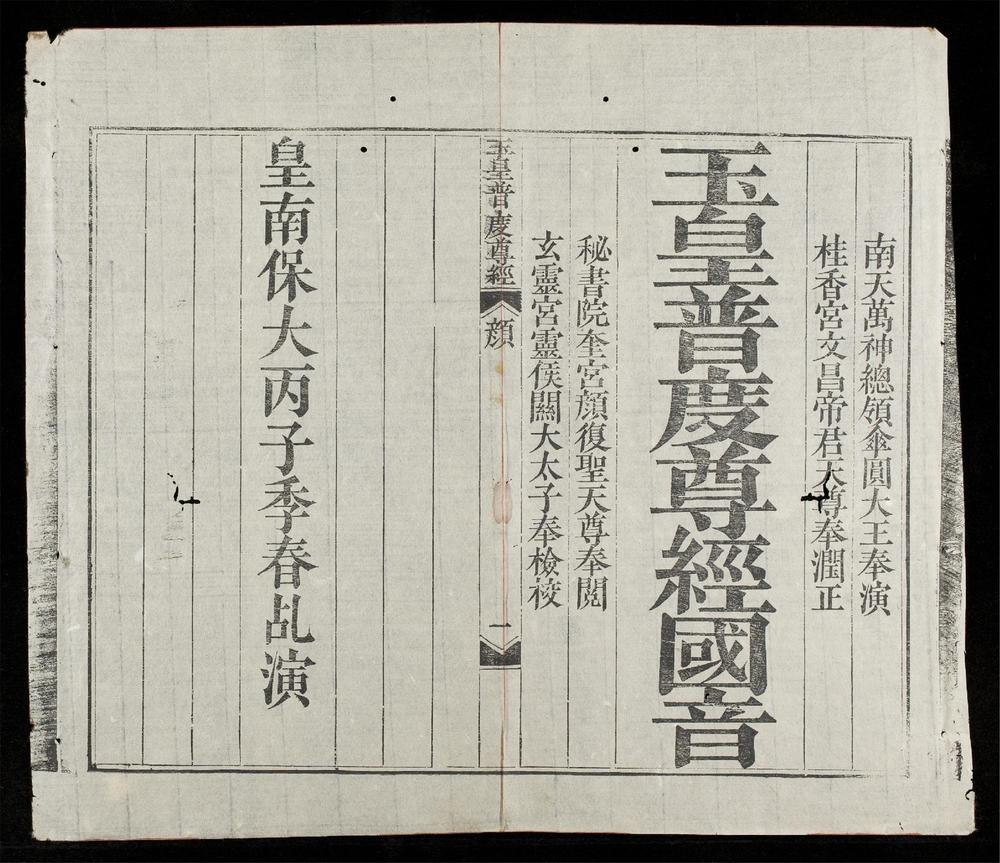 南天萬神總領傘圓大王奉演
桂香宮文昌帝君天尊奉潤正
玉皇普度尊經國音
秘書院奎宮顏復聖天尊奉閱
玄靈宮靈侯關大太子奉檢校
玉皇普度尊經
顏
一
皇南保大丙子季春乩演